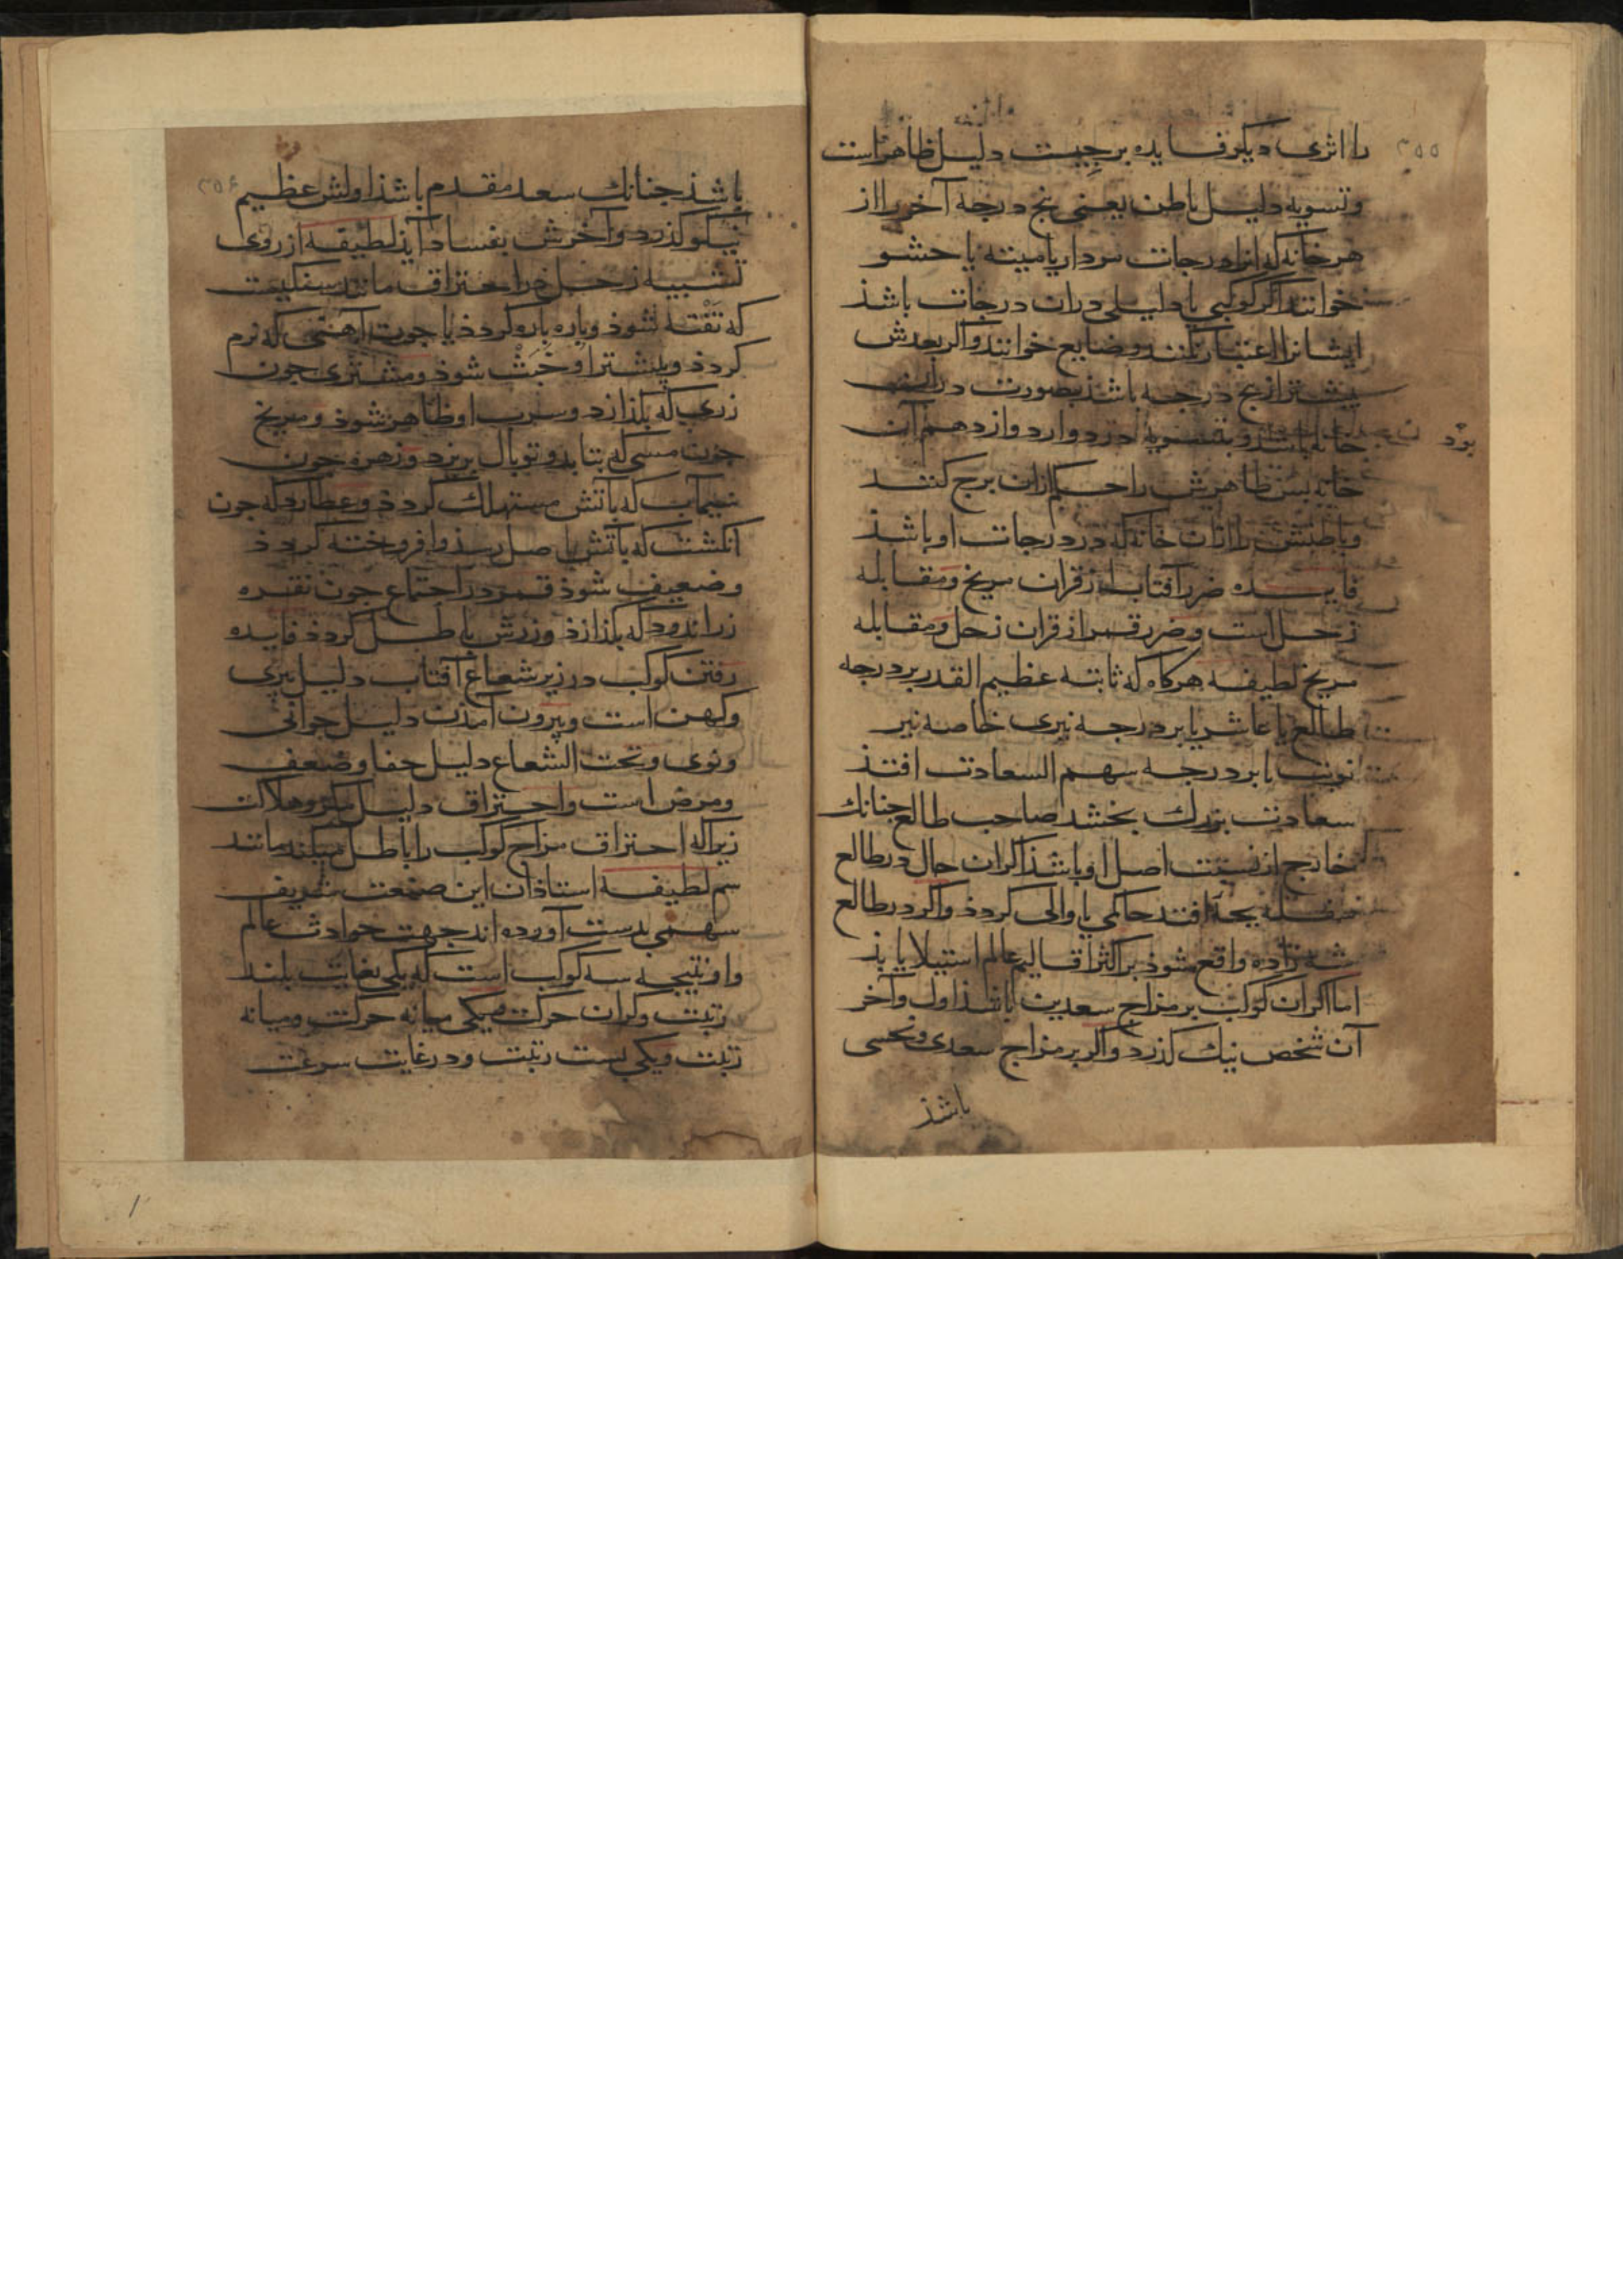 ۲۵۵
را اثری دیکر فایده برجیست دلیل ظاهر است
وتسویه دلیل باطن یعنی پنج درجه آخر را از
هر خانه که انرا درجات مردار یا میته یا حشو
خوانند اکر کوکبی یا دلیلی دران درجات باشذ
ایشانرا اعتبار نکنند وضایع خوانند واکر بعدش
بیشتر از پنج درجه باشذ بصورت در
خانه باشد وبتسویه در دوازدهم آن
بود
خانه بس ظاهرش را حکم ازان برج کنند
وباطنش را ازان خانه که در درجات او باشذ
فایده ضرر آفتاب از قران مریخ ومقابله
زحل است وضرر قمر از قران زحل ومقابله
مریخ لطیفه هرکاه که ثابته عظیم القدر بر درجه
طالع یا عاشر یا بر درجه نیری خاصه نیر
نوبت یا بر درجه سهم السعادت افتذ
سعادت بزرك بخشد صاحب طالع جنانك
خارج از نسبت اصل او باشذ اکر ان حال در طالع
بجه افتد حاکمی یا والی کردذ واکر در طالع
شه زاده واقع شوذ بر اکثر اقالیم عالم استیلا یابذ
اما اکر ان کوکب بر مزاج سعدین باشذ اول وآخر
آن شخص نیك کذرد واکر بر مزاج سعدی ونحسی
باشذ
۲۵۶
باشذ جنانك سعد مقدم باشذ اولش عظیم
نیکو کذرد وآخرش بفساد آیذ لطیفه از روی
تشبیه زحل در احتراق مانند سفالیست
که تفته شوذ وباره باره کردذ یا جون آهنی که نرم
کردذ وبیشتر او خبث شوذ ومشتری جون
زری که بکذازد وسرب او ظاهر شوذ ومریخ
جون مسی که بتابد وتوبال بریزد وزهره جون
سیماب که بآتش مستهلك کردذ وعطارد که جون
انکشت که بآتش باصل رسذ وافروخته کردذ
وضعیف شوذ قمر در اجتماع جون نقره
زراندود که بکذازذ وزرش باطل کردذ فایده
رفتن کوکب در زیر شعاع آفتاب دلیل بیری
وکهن است وبیرون آمذن دلیل جوانی
ونوی وتحت الشعاع دلیل خفا وضعف
ومرض است واحتراق دلیل وهلاکت
زیراکه احتراق مزاج کوکب را باطل میکند مانند
سم لطیفه استاذان این صنعت شریف
سهمی بدست آورده اند جهت حوادث عالم
واو نتیجه سه کوکب است که یکی بغایت بلند
رتبت وکران حرکت ویکی میانه حرکت ومیانه
رتبت ویکی بست رتبت ودر غایت سرعت